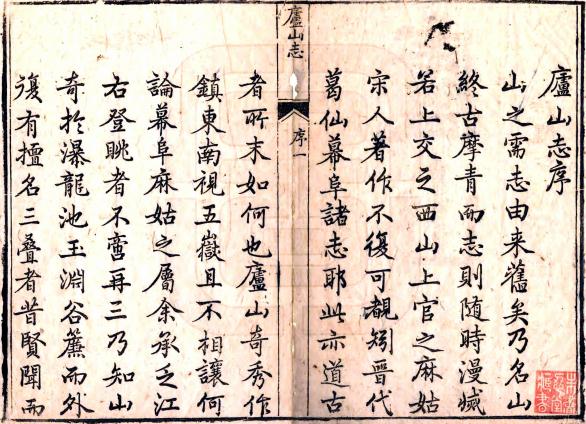 廬山志序
山之需志由来舊矣乃名山
終古摩青而志則随時漫滅
若上交之西山上官之麻姑
宋人著作不復可覩矧晋代
葛仙幕阜諸志耶此亦道古
廬山志
序一
者所末如何也廬山奇秀作
鎮東南視五嶽且不相讓何
論幕阜麻姑之屬余承乏江
右登眺者不啻再三乃知山
奇於瀑龍池玉淵谷簾而外
復有擅名三叠者昔賢聞而